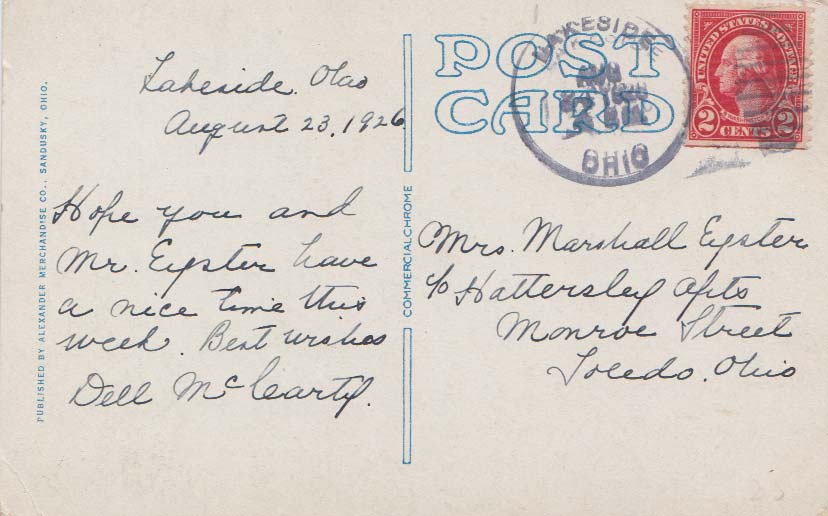 PUBLISHED BY ALEXANDER MERCHANDISE CO., SANDUSKY, OHIO.
Lakeside. Ohio
August 23, 1926
Hope you and
Mr. Eyster have
a nice time this
week. Best wishes
Dell McCarty.
COMMERCIALCHROME
POST
CARD
LAKESIDE
AUG
OHIO
UNITED STATES POSTAGE
2 CENTS 2
Mrs. Marshall Eyster
c/o Hattersley Apts
Monroe Street
Toledo. Ohio